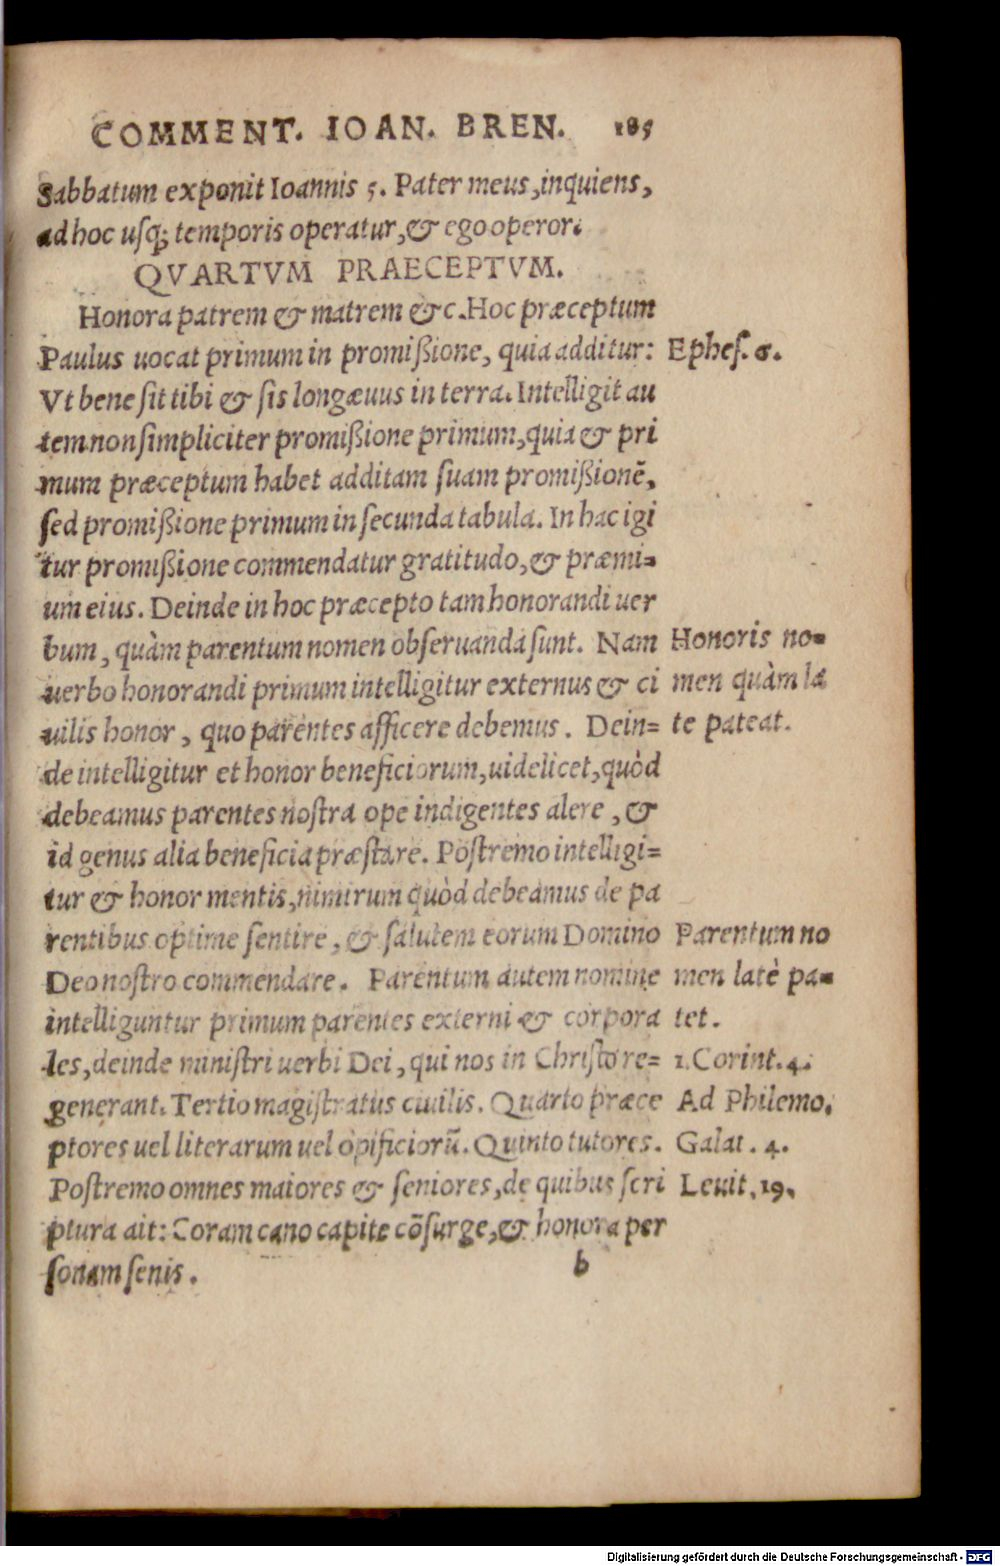 COMMENT. IOAN. BREN. 185
Sabbatum exponit Ioannis 5. Pater meus, inquiens,
ad hoc usq; temporis operatur, & ego operor.
QVARTVM PRAECEPTVM.
Honora patrem & matrem &c. Hoc præceptum
Paulus uocat primum in promißione, quia additur:
Ephes. 6.
Vt bene sit tibi & sis longæuus in terra. Intelligit au
tem non simpliciter promißione primum, quia & pri
mum præceptum habet additam suam promißionē,
sed promißione primum in secunda tabula. In hac igi
tur promißione commendatur gratitudo, & præmi=
um eius. Deinde in hoc præcepto tam honorandi uer
bum, quàm parentum nomen obseruanda sunt. Nam
Honoris no=
uerbo honorandi primum intelligitur externus & ci
men quàm la
uilis honor, quo parentes afficere debemus. Dein=
te pateat.
de intelligitur et honor beneficiorum, uidelicet, quòd
debeamus parentes nostra ope indigentes alere, &
id genus alia beneficia præstare. Postremo intelligi=
tur & honor mentis, nimirum quòd debeamus de pa
rentibus optime sentire, & salutem eorum Domino
Parentum no
Deo nostro commendare. Parentum autem nomine
men latè pa=
intelliguntur primum parentes externi & corpora
tet.
les, deinde ministri uerbi Dei, qui nos in Christo re=
1. Corint. 4.
generant. Tertio magistratus ciuilis. Quarto præce
Ad Philemo.
ptores uel literarum uel opificiorū. Quinto tutores.
Galat. 4.
Postremo omnes maiores & seniores, de quibus scri
Leuit. 19.
ptura ait: Coram cano capite cōsurge, & honora per
sonam senis.
b
Digitalisierung gefördert durch die Deutsche Forschungsgemeinschaft - DFG